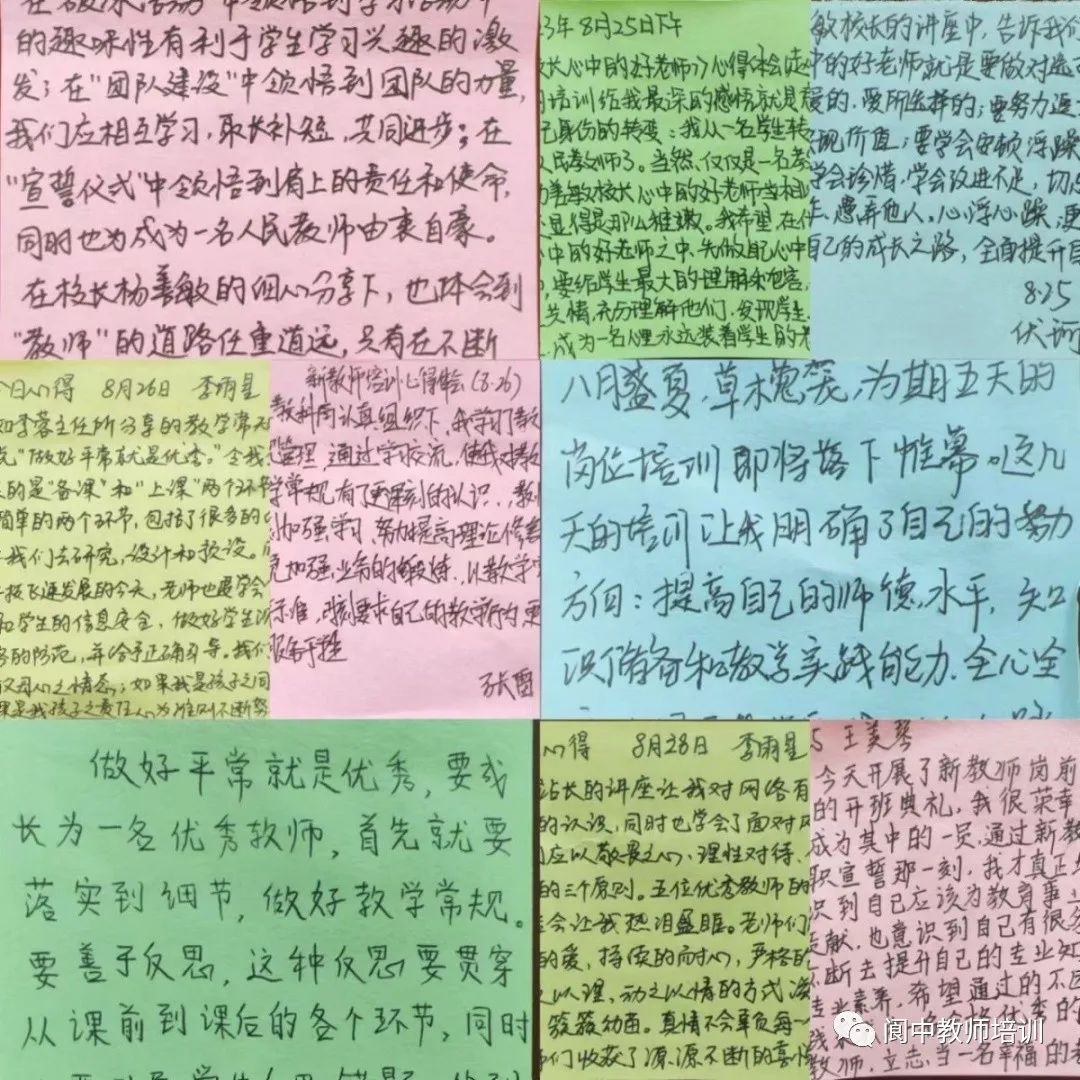 的趣味性有利于学生学习兴趣的激
发；在"团队建设"中领悟到团队的力量，
我们应相互学习，取长补短，共同进步；在
"宣誓仪式"中领悟到肩上的责任和使命，
同时也为成为一名人民教师由衷自豪。
在校长杨善敏的细心分享下，也体会到
"教师"的道路任重道远，只有在不断
3年8月25日下午
长心中的好老师》心得体会
培训给我最深的感悟就是
身份的转变：我从一名学生转
民教师了。当然，仅仅是一名老
善敏校长心中的好老师当相
显得是那么稚嫩。我希望在
中的好老师之中，先做自己心中
，要给学生最大的理解和包容，
共情，充分理解他们，发现学生
成为一名心里永远装着学生的老
敏校长的讲座中，告诉我们
中的好老师就是要做对选
爱的，爱所选择的；要努力追
现价值；要学会安顿浮躁
学会珍惜，学会改进不足，切忌
愚弄他人。心浮心躁，更
自己的成长之路，全面提升自
8.25
今日心得 8月26日 李雨星
如李蓉主任所分享的教学常规
"做好平常就是优秀。"令我
的是"备课"和"上课"两个环节
简单的两个环节，包括了很多的
我们去研究，设计和预设。
技飞速发展的今天，老师也要学会
和学生的信息安全，做好学生
的防范，并给予正确引导。我们
父母心之情态；如果我是孩子之间
果是我孩子之责任心为准则不断努
新教师培训心得体会(8.26)
教科局认真组织下，我学习了教
管理，通过学习交流，使我对教
学常规有了更深刻的认识，教
加强学习，努力提高理论修养
更加强业务的锻炼，从教学
标准，时刻要求自己的教学行为更
服务于学生
张雷
八月盛夏，草木葱茏，为期五天的
岗位培训即将落下帷幕。这几
天的培训让我明确了自己的努力
方向：提高自己的师德水平，知
识储备和教学实践能力。全心全
做好平常就是优秀，要成
长为一名优秀教师，首先就要
落实到细节，做好教学常规。
要善于反思，这种反思要贯穿
从课前到课后的各个环节，同时
心得 8月28日 李雨星
站长的讲座让我对网络有
的认识，同时也学会了面对
应以敬畏之心、理性对待、
的三个原则。五位优秀教师的
会让我热泪盈眶。老师们
的爱，持续的耐心，严格的
以理，动之以情的方式
簌簌动面。真情不会辜负每一
们收获了源源不断的喜
5 王美琴
今天开展了新教师岗前
的开班典礼，我很荣幸
成为其中的一员，通过新教
职宣誓那一刻，我才真正
识到自己应该为教育事业
贡献，也意识到自己有很多
不断去提升自己的专业知
专业素养，希望通过的不
优秀的
教师，立志当一名幸福的
阆中教师培训